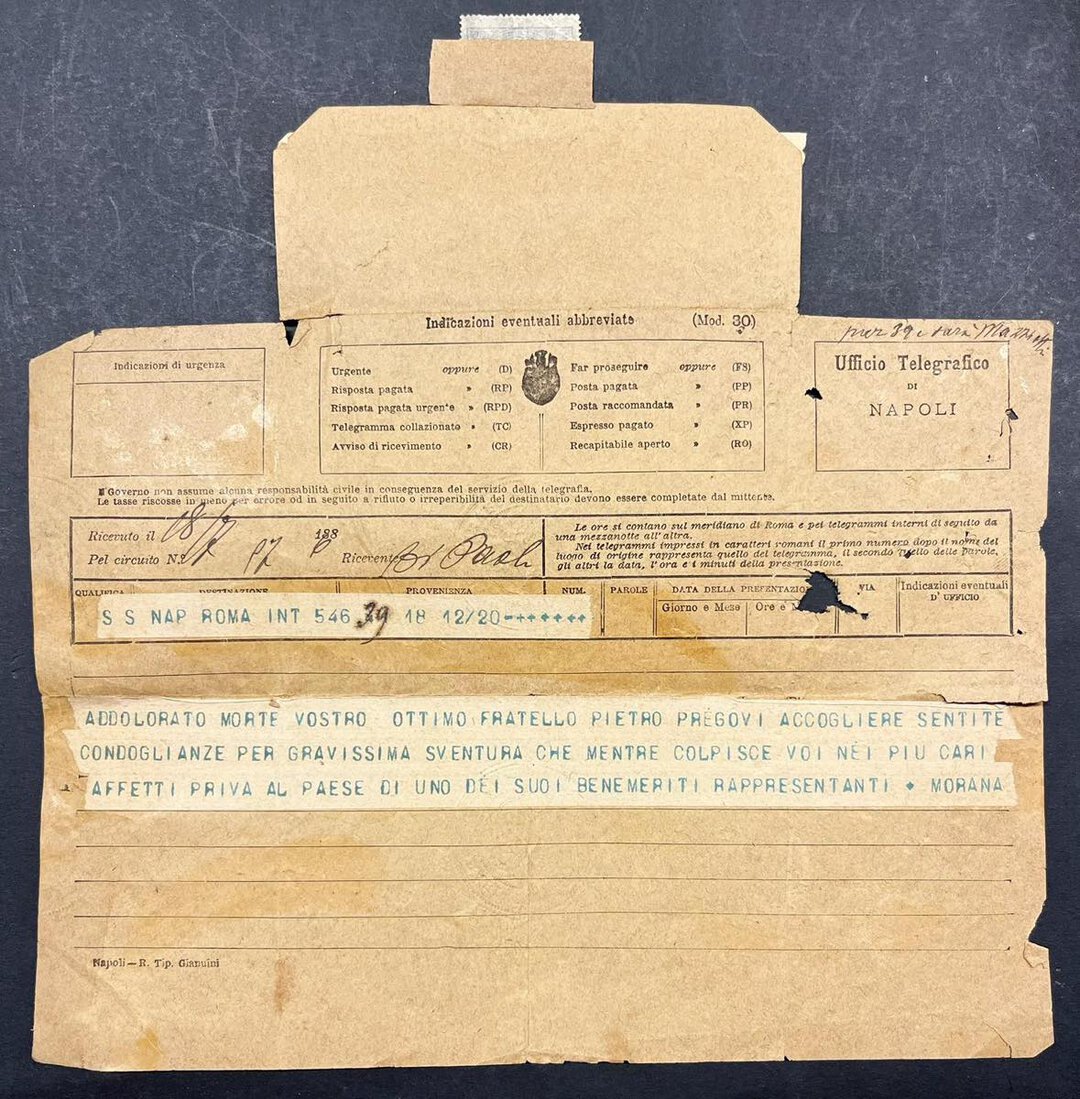 Indicazioni eventuali abbreviate (Mod. 30)
Indicazioni di urgenza
Urgente oppure (D)
Risposta pagata » (RP)
Risposta pagata urgente » (RPD)
Telegramma collazionato » (TC)
Avviso di ricevimento » (CR)
Far proseguire oppure (FS)
Posta pagata » (PP)
Posta raccomandata » (PR)
Espresso pagato » (XP)
Recapitabile aperto » (RO)
Ufficio Telegrafico
DI
NAPOLI
Il Governo non assume alcuna responsabilità civile in conseguenza del servizio della telegrafia.
Le tasse riscosse in meno per errore od in seguito a rifiuto o irreperibilità del destinatario devono essere completate dal mittente.
Ricevuto il 18/7 188
Pel circuito N. Ricevente
Le ore si contano sul meridiano di Roma e pei telegrammi interni di seguito da
una mezzanotte all'altra.
Nei telegrammi impressi in caratteri romani il primo numero dopo il nome del
luogo di origine rappresenta quello del telegramma, il secondo quello delle parole,
gli altri la data, l'ora e i minuti della presentazione.
QUALIFICA DESTINAZIONE PROVENIENZA NUM. PAROLE DATA DELLA PRESENTAZIONE VIA Indicazioni eventuali
D' UFFICIO
Giorno e Mese Ore e
S S NAP ROMA INT 546 39 18 12/20
ADDOLORATO MORTE VOSTRO OTTIMO FRATELLO PIETRO PREGOVI ACCOGLIERE SENTITE
CONDOGLIANZE PER GRAVISSIMA SVENTURA CHE MENTRE COLPISCE VOI NEI PIU CARI
AFFETTI PRIVA AL PAESE DI UNO DEI SUOI BENEMERITI RAPPRESENTANTI + MORANA
Napoli — R. Tip. Giannini